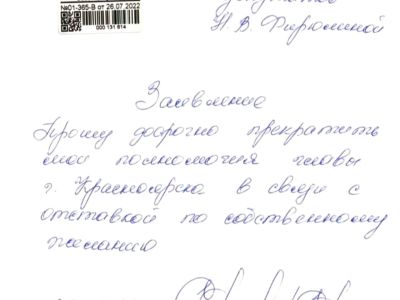 №01-365-В от 26.07.2022
000 131 614
депутатов
Н. В. Фирюлиной
Заявление
Прошу досрочно прекратить
мои полномочия главы
г. Красноярска в связи с
отставкой по собственному
желанию